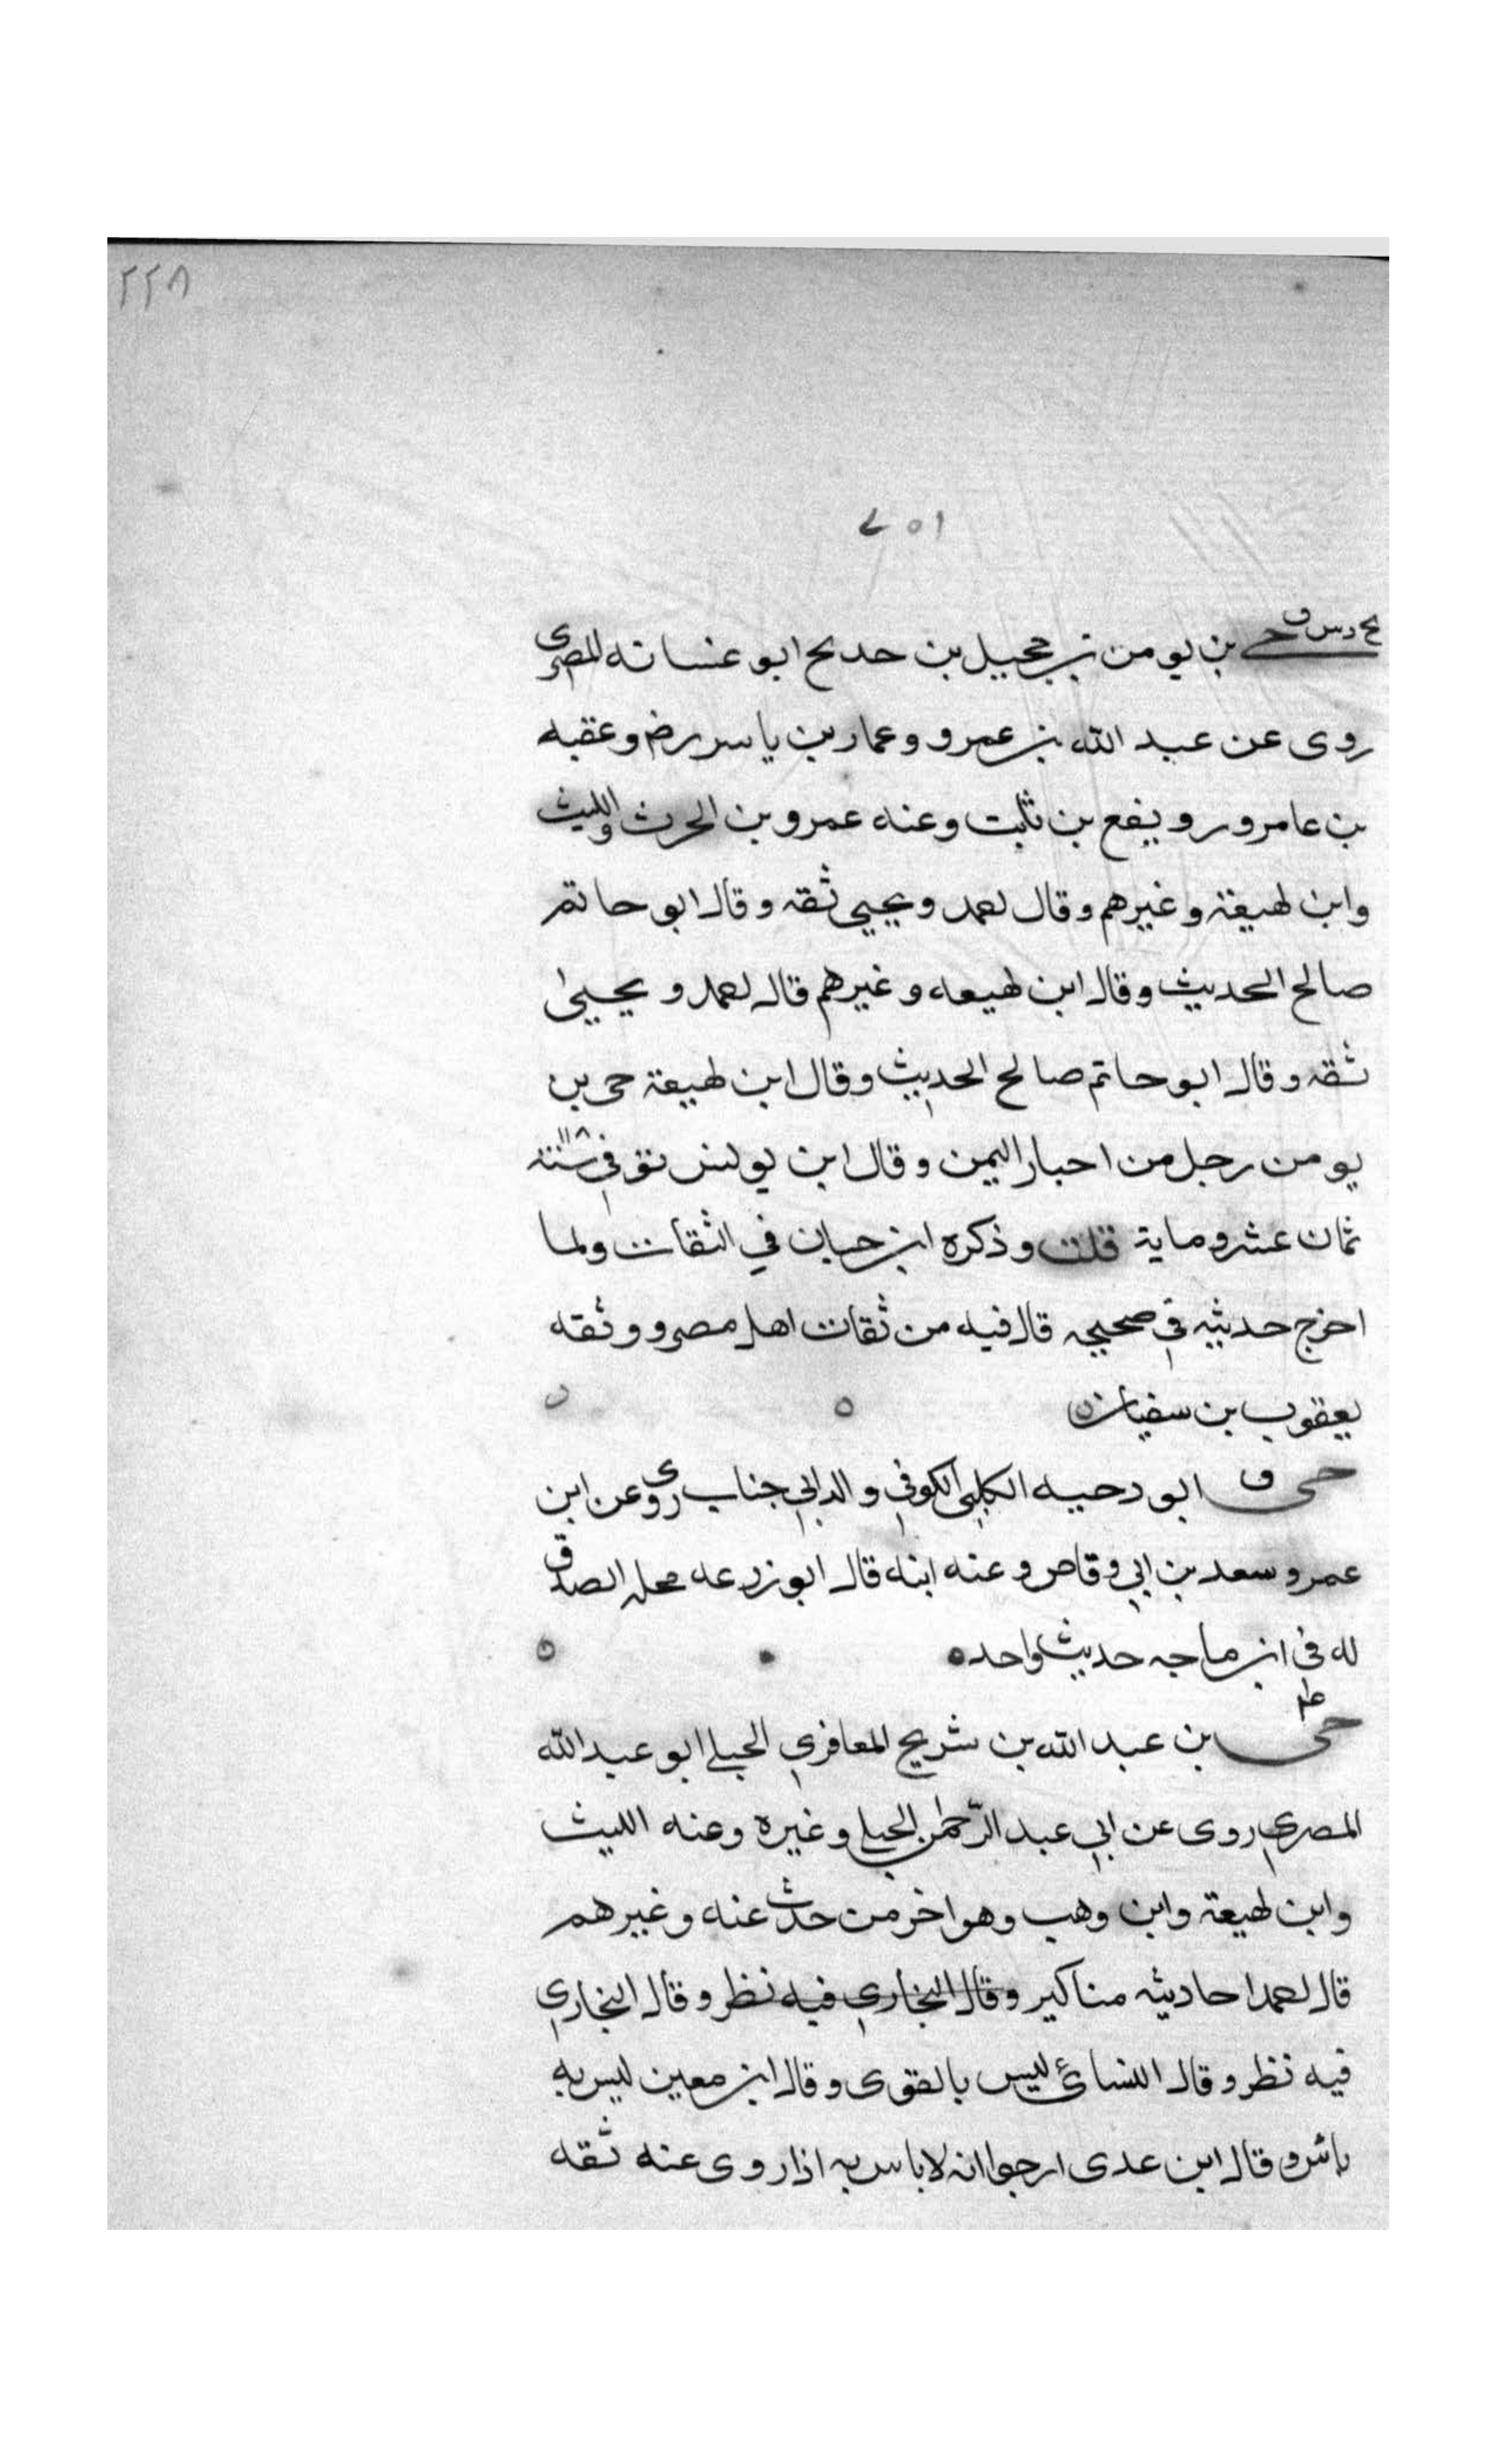 ٢٢٨
بخ د س ق
حي بن يومن بن حجيل بن حديج ابو عشانه المصرى
روى عن عبد الله بن عمرو وعمار بن ياسر رض وعقبه
بن عامر ورويفع بن ثابت وعنه عمرو بن الحرث والليث
وابن لهيعة وغيرهم وقال احمد ويحيى ثقه وقال ابو حاتم
صالح الحديث وقال ابن لهيعه وغيرهم قال احمد ويحيى
ثقه وقال ابو حاتم صالح الحديث وقال ابن لهيعة حى بن
يومن رجل من احبار اليمن وقال ابن يونس توفي سنة
ثمان عشر وماية قلت وذكره ابن حبان في الثقات ولما
اخرج حديثه في صحيحه قال فيه من ثقات اهل مصر ووثقه
يعقوب بن سفيان
ق
حى ابو دحيه الكلبي الكوفي والد ابي جناب روى عن ابن
عمر وسعد بن ابي وقاص وعنه ابنه قال ابو زرعه محله الصدق
له في ابن ماجه حديث واحد
حى بن عبد الله بن شريح المعافري الحبلي ابو عبد الله
المصري روى عن ابي عبد الرحمن الحبلي وغيره وعنه الليث
وابن لهيعة وابن وهب وهو اخر من حدث عنه وغيرهم
قال احمد احاديثه مناكير وقال البخاري فيه نظر وقال البخاري
فيه نظر وقال النسائ ليس بالقوى وقال ابن معين ليس به
باس وقال ابن عدى ارجوا انه لا باس به اذا روى عنه ثقه